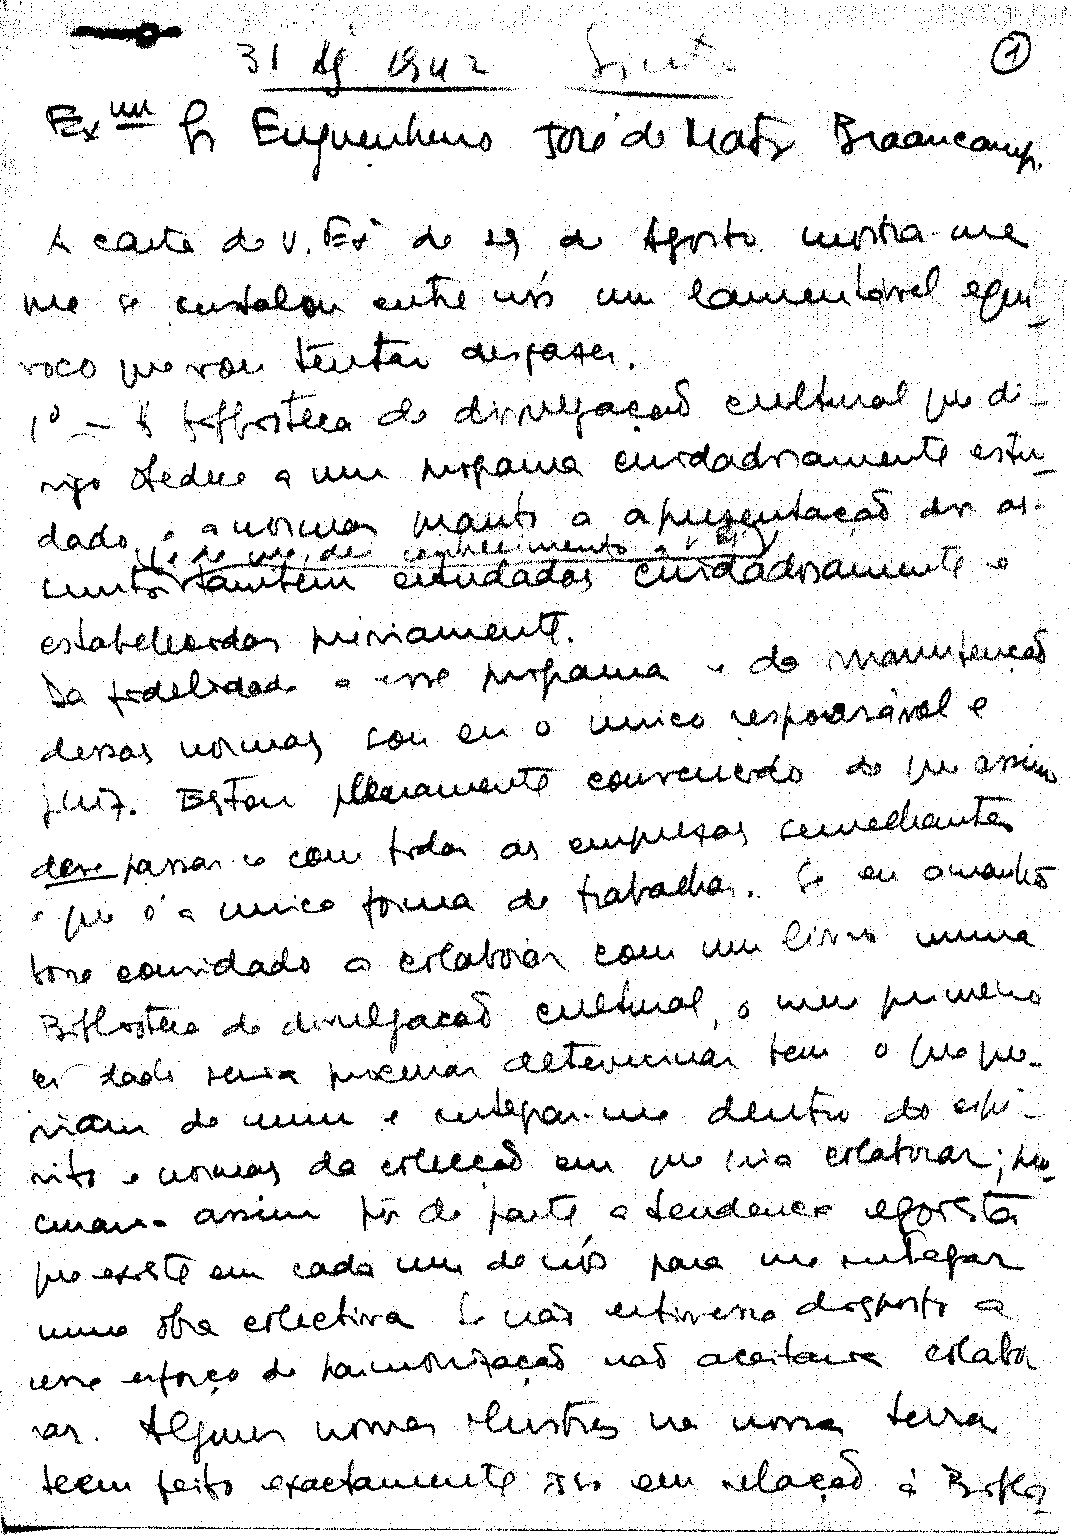 1
31 Ag 1942
Exmo Sr Engenheiro José de Matos Braamcamp.
A carta de V. Exª de 29 de Agosto mostra-me
que se instalou entre nós um lamentável equi-
voco que vou tentar desfazer.
1º — A Biblioteca de divulgação cultural que di-
rijo obedece a um programa cuidadosamente estu-
dado, e a normas quanto a apresentação dos as-
de que dei conhecimento a V. Exª
suntos também estudadas cuidadosamente e
estabelecidas previamente.
Da fidelidade a esse programa e da manutenção
dessas normas sou eu o unico responsável e
juiz. Estou plenamente convencido de que assim
deve passar-se com todas as empresas semelhantes
e que é a unica forma de trabalhar. Se eu amanhã
fosse convidado a colaborar com um livro numa
Biblioteca de divulgação cultural, o meu primeiro
cuidado seria procurar determinar bem o que que-
riam de mim e integrar-me dentro do espi-
rito e normas da colecção em que iria colaborar; pro-
curava assim pôr de parte a tendencia egoista
que existe em cada um de nós para me integrar
numa obra colectiva. Se não estivesse disposto a
esse esforço de harmonização não aceitava colabo-
rar. Alguns nomes ilustres na nossa terra
teem feito exactamente isso em relação á Biblio-